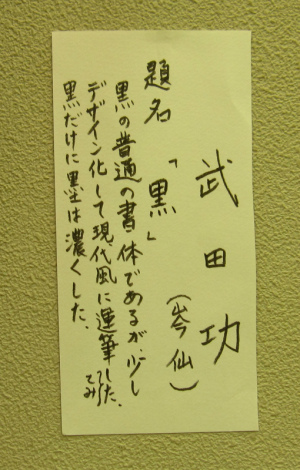 武田功
(岑仙)
題名「黒」
黒の普通の書体であるが、少し
デザイン化して現代風に運筆してみた。
黒だけに墨は濃くした。